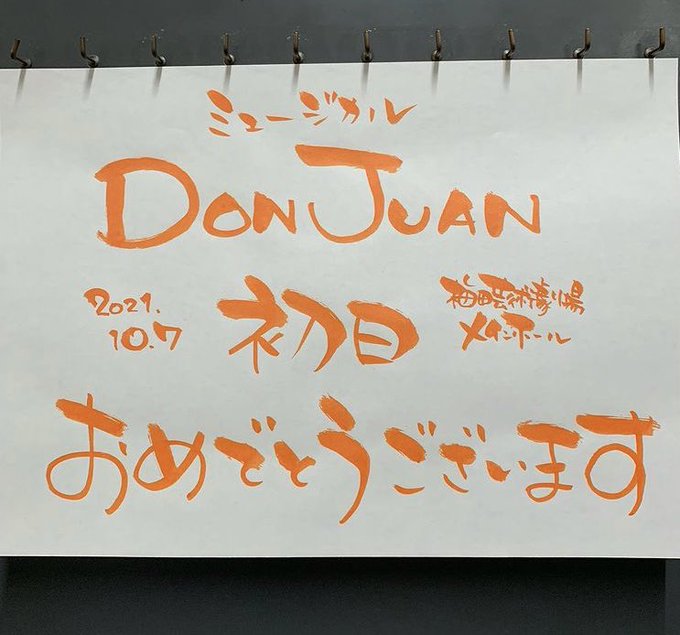 ミュージカル
DON JUAN
2021.
10.7
初日
梅田芸術劇場
メインホール
おめでとうございます